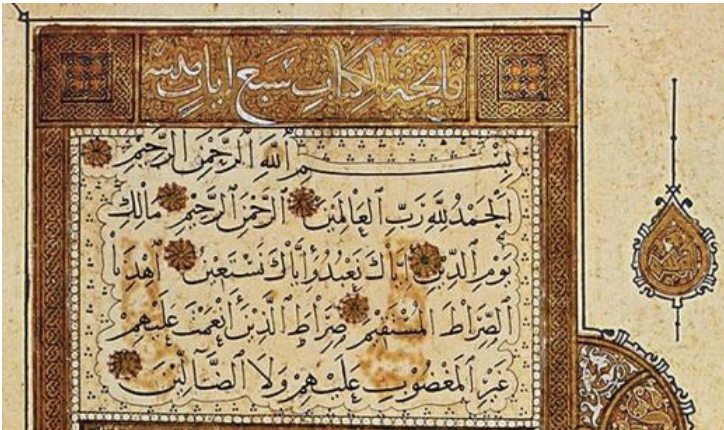 فاتحة الكتاب سبع آيات مدنية
بِسْمِ ٱللَّهِ ٱلرَّحْمَٰنِ ٱلرَّحِيمِ
ٱلْحَمْدُ لِلَّهِ رَبِّ ٱلْعَالَمِينَ ٱلرَّحْمَٰنِ ٱلرَّحِيمِ مَالِكِ
يَوْمِ ٱلدِّينِ إِيَّاكَ نَعْبُدُ وَإِيَّاكَ نَسْتَعِينُ ٱهْدِنَا
ٱلصِّرَاطَ ٱلْمُسْتَقِيمَ صِرَاطَ ٱلَّذِينَ أَنْعَمْتَ عَلَيْهِمْ
غَيْرِ ٱلْمَغْضُوبِ عَلَيْهِمْ وَلَا ٱلضَّالِّينَ